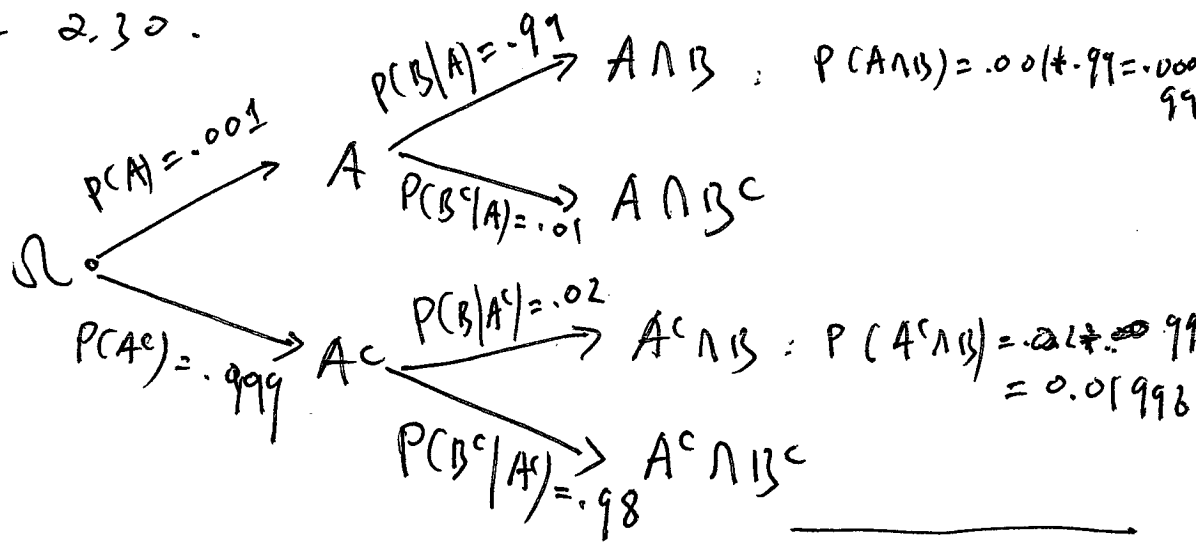 2.30.
P(B|A)=.99
A∩B : P(A∩B)=.001*.99=.000
99
P(A)=.001
A
P(Bᶜ|A)=.01
A∩Bᶜ
Ω
P(Aᶜ)=.999
Aᶜ
P(B|Aᶜ)=.02
Aᶜ∩B : P(Aᶜ∩B)= 99
= 0.01998
P(Bᶜ|Aᶜ)=.98
Aᶜ∩Bᶜ